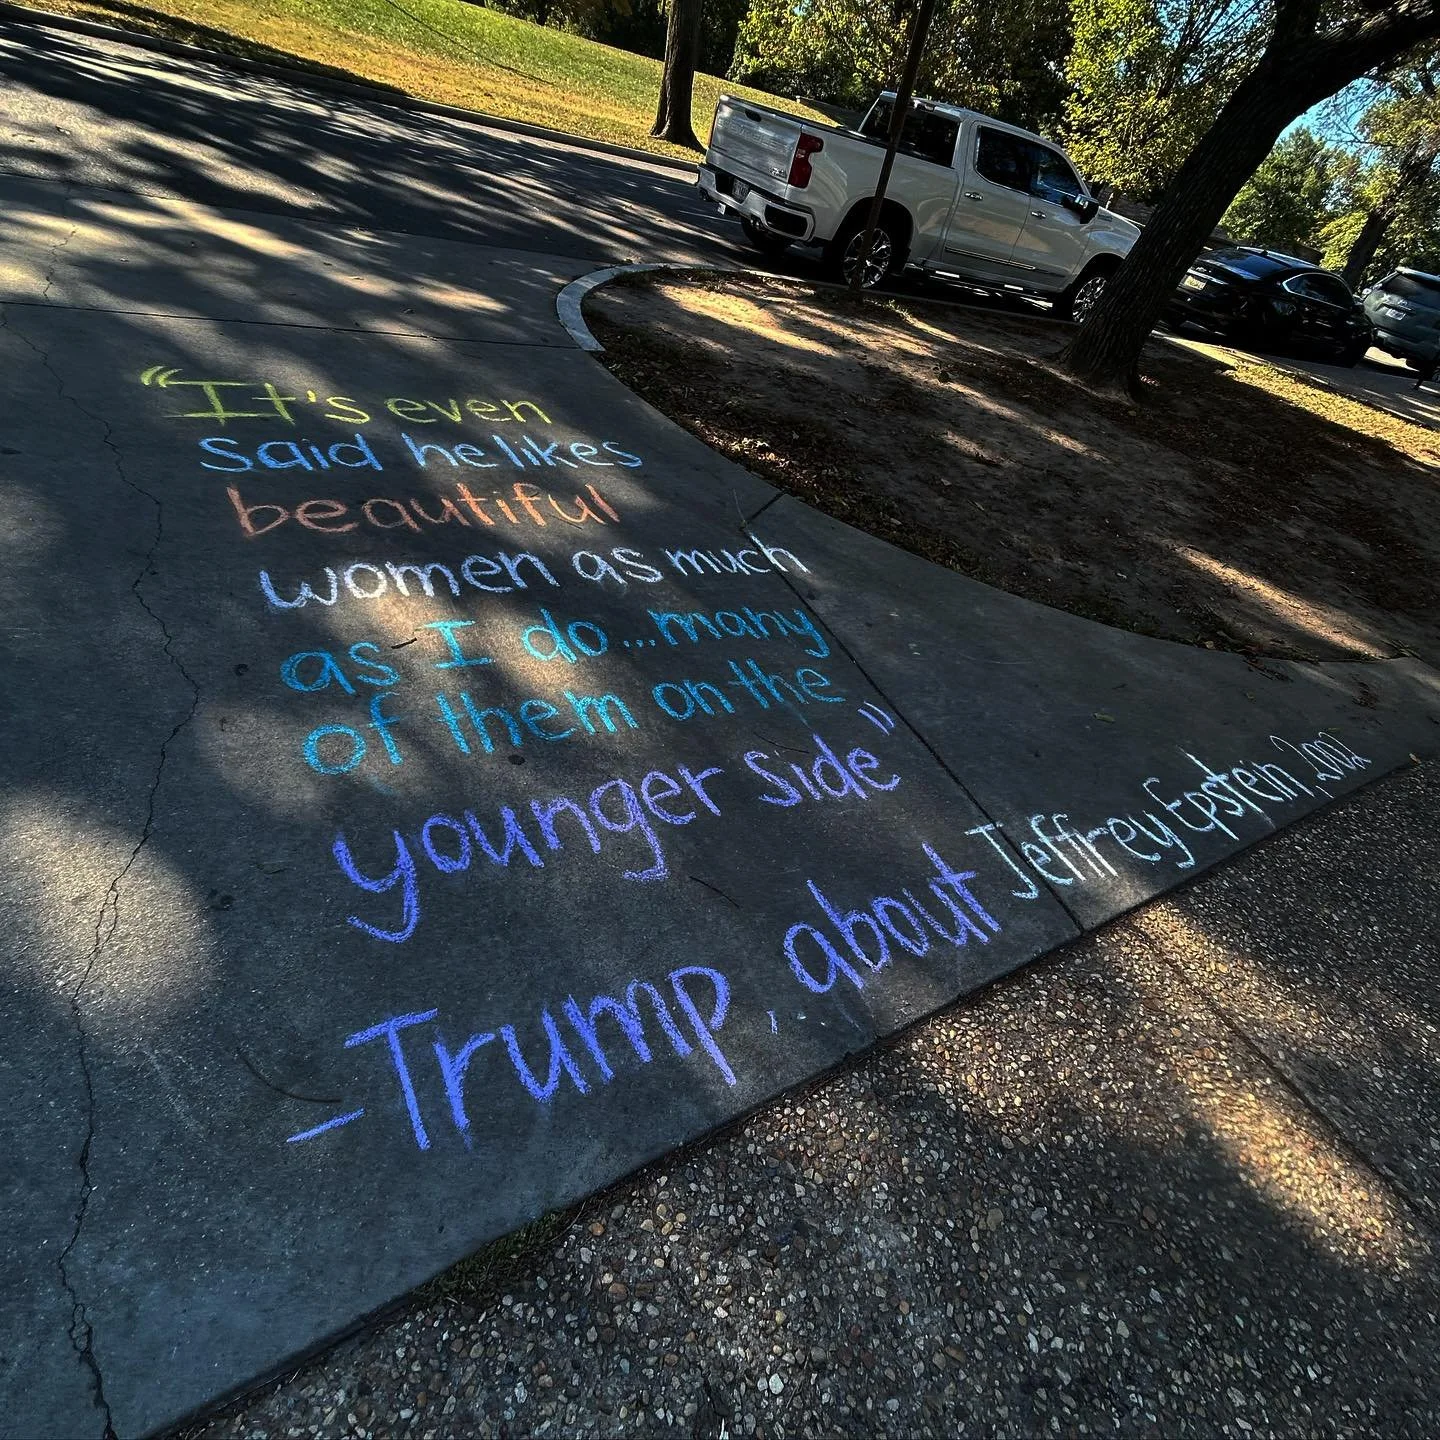 “It's even
said he likes
beautiful
women as much
as I do...many
of them on the
younger side"
-Trump, about Jeffrey Epstein, 2002